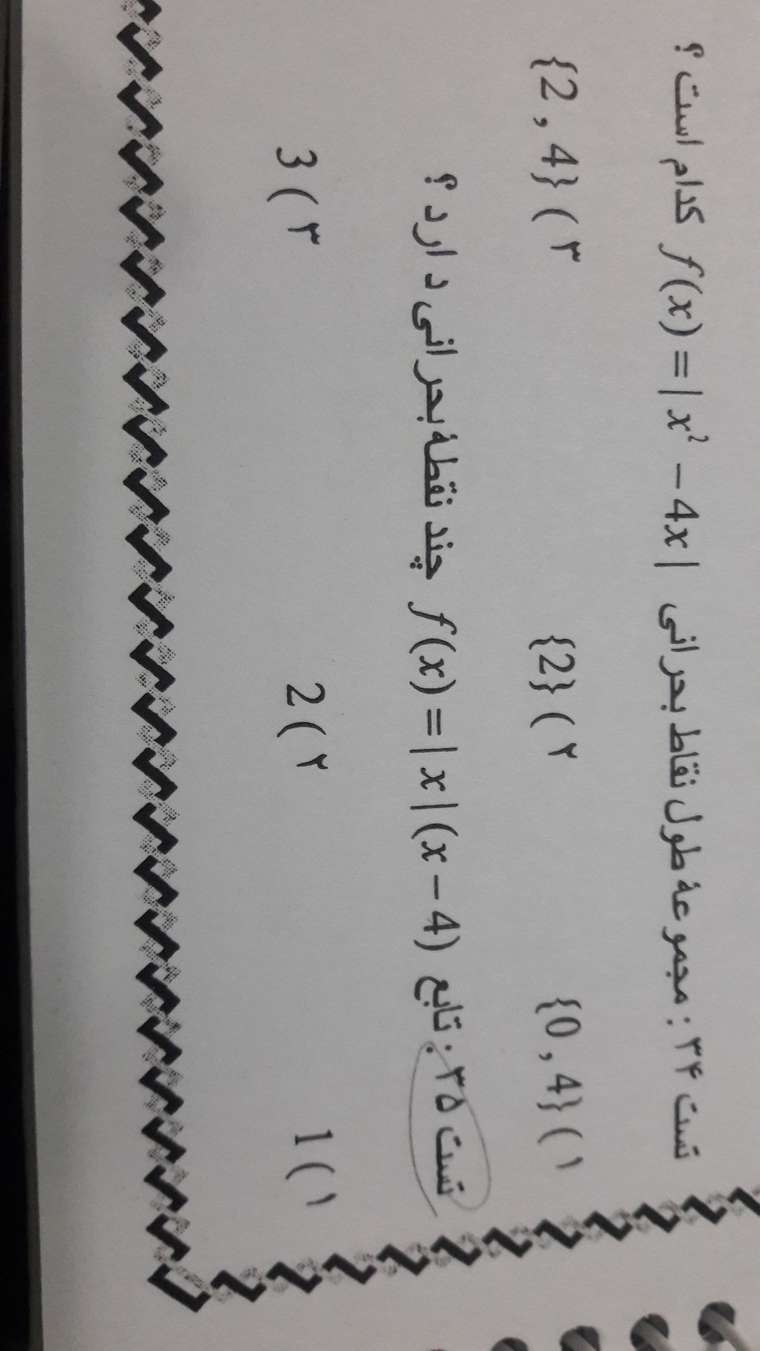 تست ۳۴ : مجموعهٔ طول نقاط بحرانی f(x) = |x² − 4x| کدام است ؟
۱) {0 , 4} ۲) {2} ۳) {2 , 4}
تست ۳۵ : تابع f(x) = |x|(x − 4) چند نقطهٔ بحرانی دارد ؟
۱) 1 ۲) 2 ۳) 3